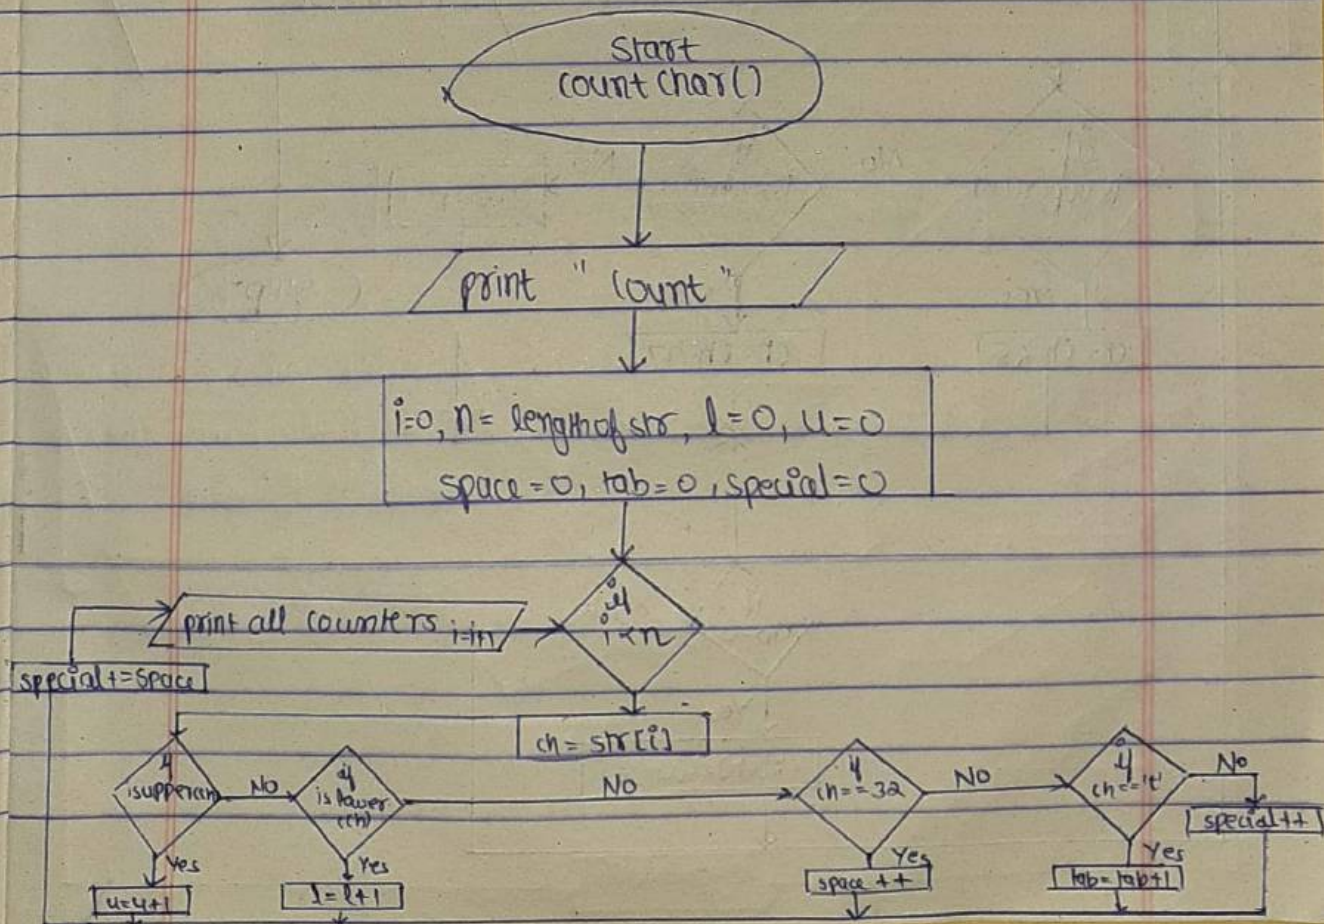 Start
countchar()
print " Count "
i=0, n= length of str, l=0, u=0
space=0, tab=0, special=0
print all counters i=i+1
if
i<n
special+=space
ch= str[i]
if
No
if
islower
(ch)
No
if
ch==32
NO
if
ch=='t'
No
special++
Yes
u=u+1
Yes
l=l+1
Yes
space ++
Yes
tab=tab+1